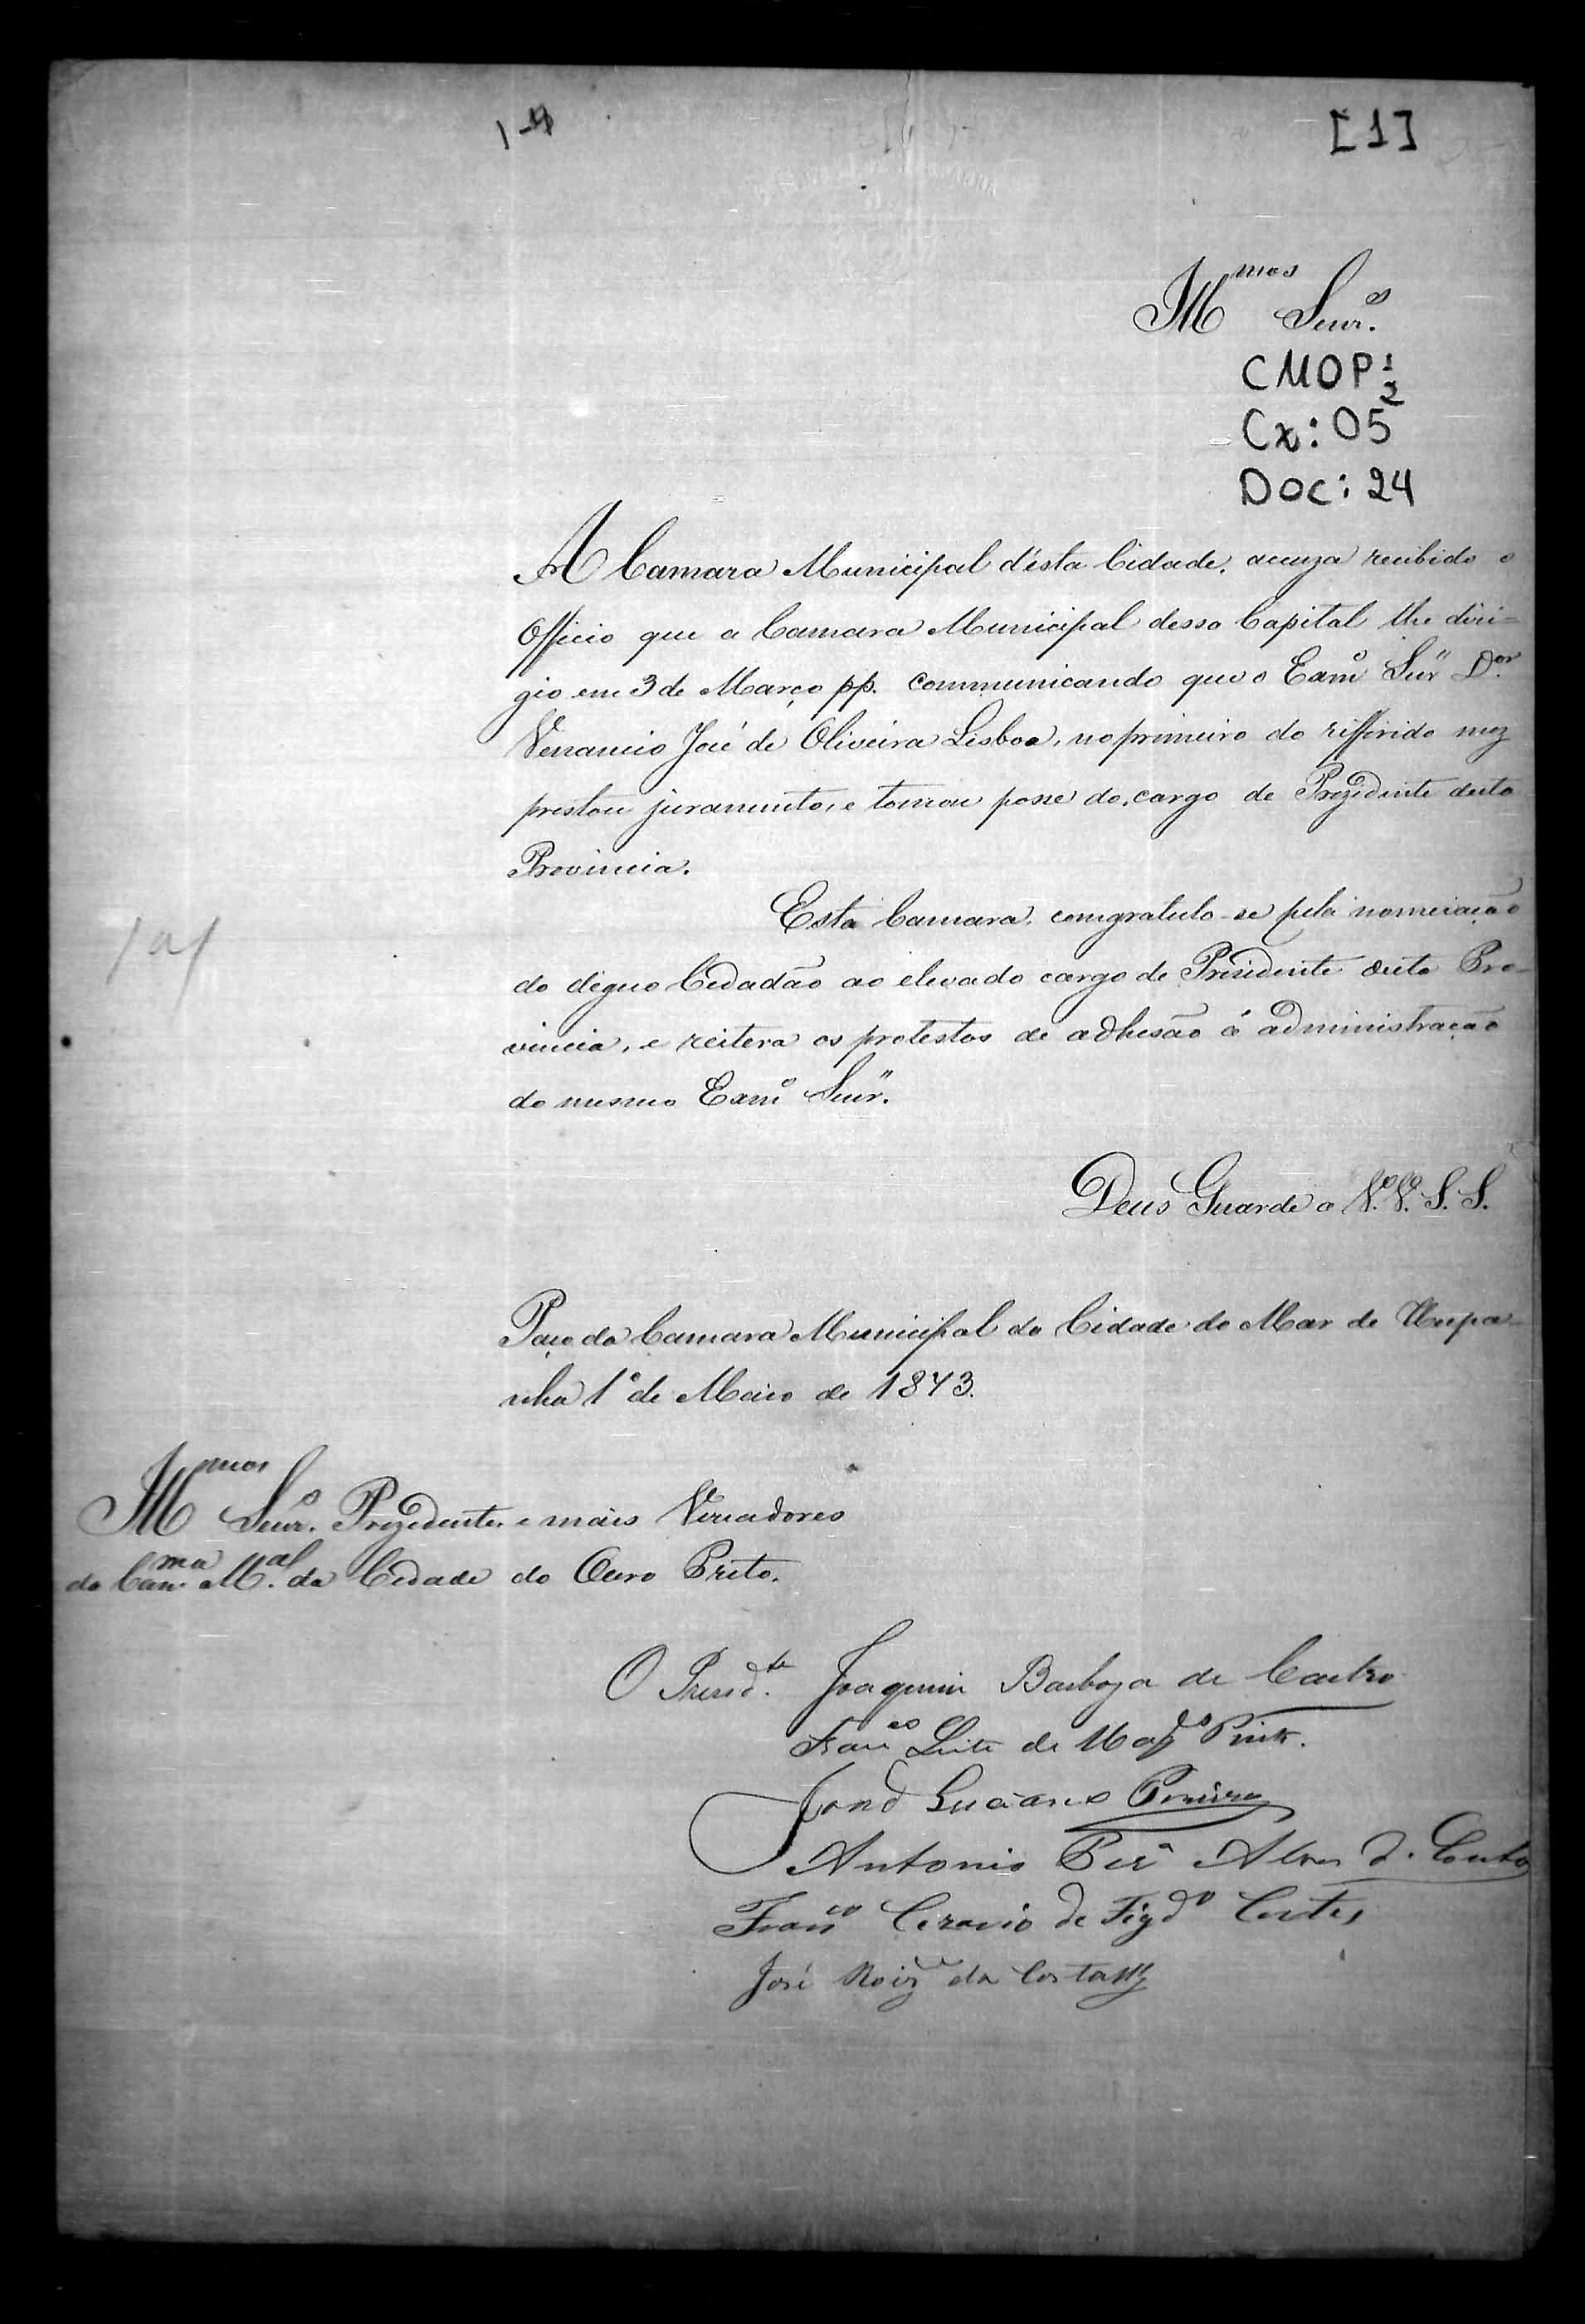 [1]
Illmos Senrs.
CMOP 1/2
Cx: 05
Doc: 24
A Camara Municipal d'ésta Cidade, accuza recibido o
Officio que a Camara Municipal dessa Capital lhe diri=
gio em 3 de Março pp. communicando que o Exmo Senr Dor.
Venancio José de Oliveira Lisboa, no primeiro do rifferido mez
prestou juramento, e tomou posse do cargo de Prezidente desta
Provincia.
Esta Camara, comgratula-se pela nomeiação
do digno Cidadão ao elevado cargo de Presidente desta Pro-
vincia, e reitera os protestos de adhesão á administração
do mesmo Exmo Senr.
Deus Guarde a V.V. S.S.
Paço da Camara Municipal da Cidade do Mar de Hespa-
nha 1º de Maio de 1873.
Illmos Senrs. Prezidente, e mais Vereadores
da Camma. Mal. da Cidade do Ouro Preto.
O Presidte. Joaquim Barboza de Castro
Franco Leite de Magos Pinto.
José Luciano Pereira
Antonio Pera Alves d. Couto
Franco Cezario de Figdo Cortes
José Roiz da Costa